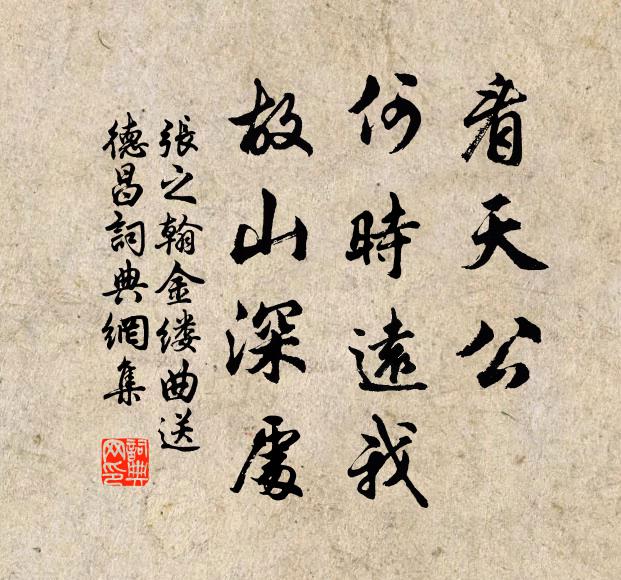 看天公
何時遠我
故山深處
張之翰金缕曲送
德昌詞典網集
詞典网印